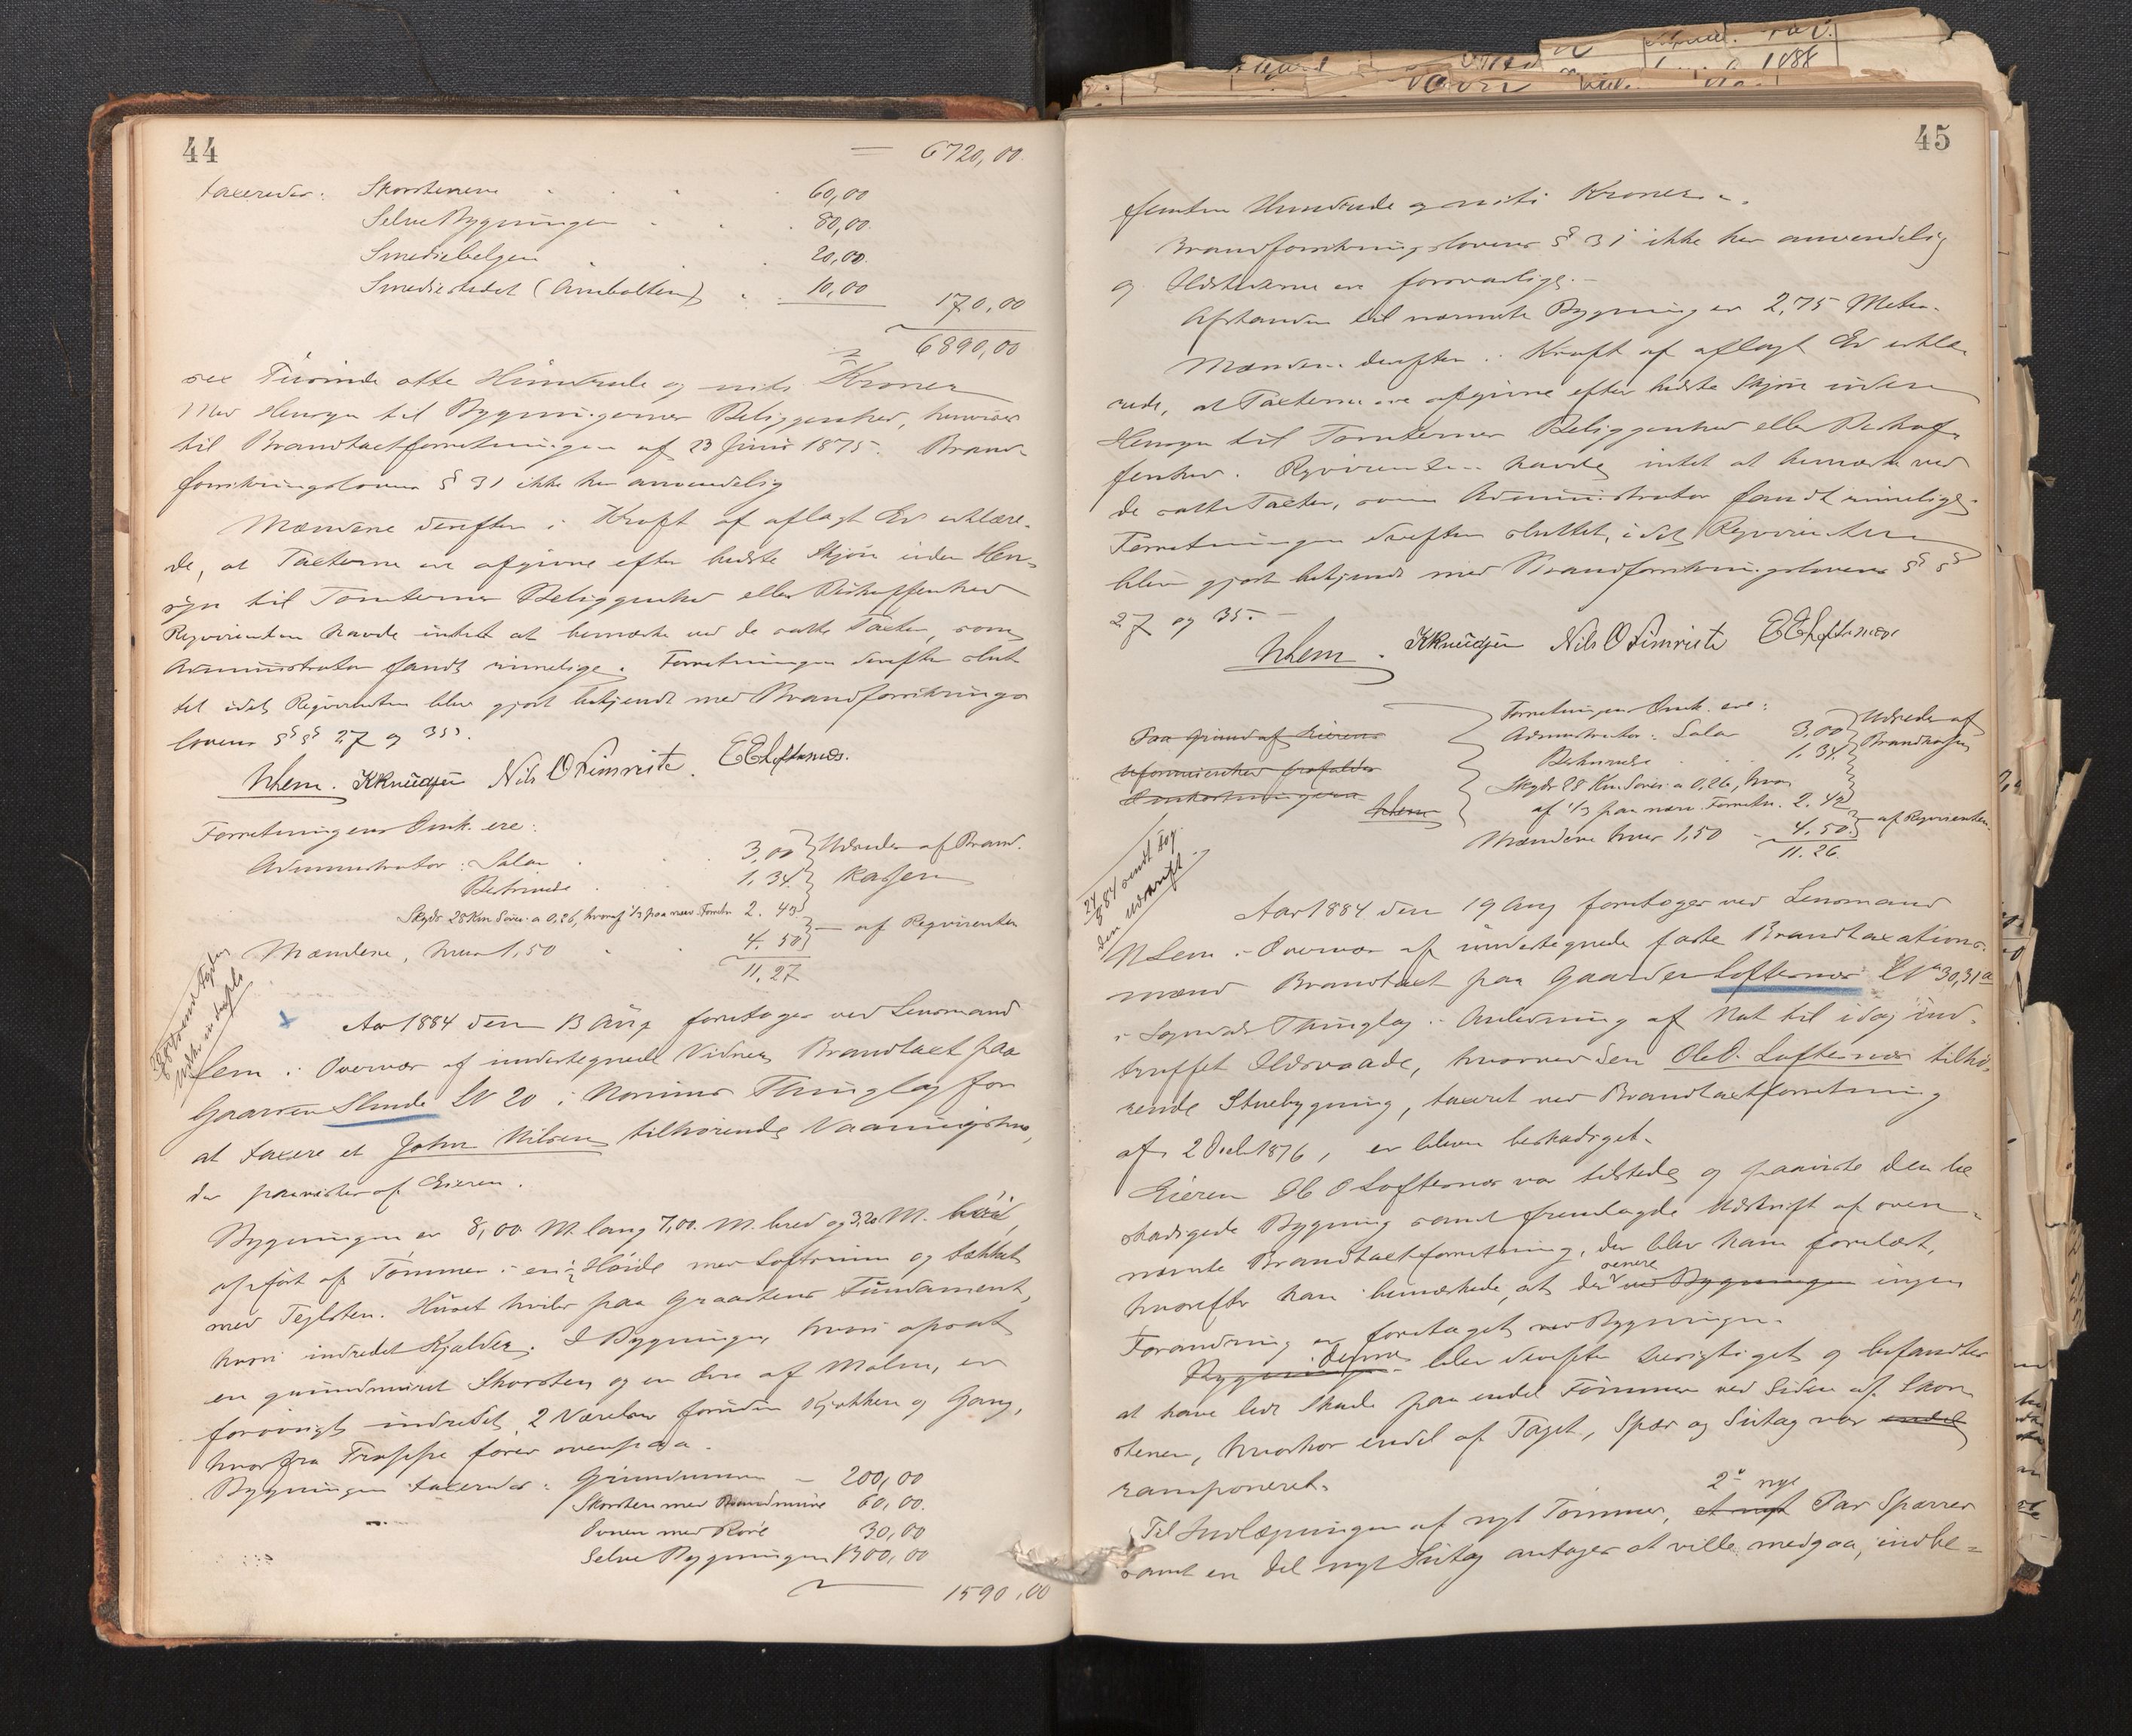 44
= 6720,00.
taxeredes: Skorstenene 60,00
Selve Bygningen 80,00.
Smediebelgen 20,00.
Smediestedet (Ambolten) 10,00 170,00
6890,00
sex Tusinde otte Hundrede og niti Kroner
Med Hensyn til Bygningernes Beliggenhed, henvises
til Brandtaxtforretningen af 23 Juni 1875. Brand-
forsikringslovens § 31 ikke her anvendelig
Mændene derefter i Kraft af aflagt Ed erklære-
de, at Taxterne ere afgivne efter bedste Skjøn uden Hen-
syn til Tomternes Beliggenhed eller Beskaffenhed
Reqvirenten havde intet at bemærke ved de satte Taxter, som
Administrator fandt rimelige. Forretningen derefter slut-
tet idet Reqvirenten blev gjort bekjendt med Brandforsikrings-
lovens §§ 27 og 35.
NLem. KKnudsen Nils O Timreite. EELoftesnæs.
Forretningens Omk. ere:
Administrator: Salær 3,00 } Udredes af Brand-
Betjenede 1.34. } kassen
Skyds 28 Km Soveis a 0,26, hvoraf 1/3 paa nærv. Forretn. 2.43
Mændene, hver 1,50 4.50 } — af Reqvirenten
11.27
Aar 1884 den 13 Aug foretoges ved Lensmand
Lem i Overvær af undertegnede Vidner Brandtaxt paa
Gaarden Slinde LN 20 i Norums Thinglag for
at taxere et John Nilsen tilhørende Vaaningshus,
der paavistes af Eieren.
Bygningen er 8,00 M. lang 7,00 M. bred og 3,20 M. høi,
opført af Tømmer i en ½ Høide med Loftsrum og tækket
med Teglsten. Huset hviler paa Graastens Fundament,
hvori indredet Kjælder. I Bygningen, hvori opsat
en grundmuret Skorsten og en Ovn af Malm, er
forøvrigt indredet 2 Værelser foruden Kjøkken og Gang,
hvorfra Trappe fører ovenpaa.
Bygningen taxeredes: Grundmuren — 200,00
Skorsten med Brandmure 60,00.
Ovnen med Rør 30,00
Selve Bygningen 1300,00
1590,00
45
femten Hundrede og niti Kroner.
Brandforsikringslovens § 31 ikke her anvendelig
og Ildstederne ere forsvarlige.
Afstanden til nærmeste Bygning er 2,75 Meter.
Mændene derefter i Kraft af aflagt Ed erklæ-
rede, at Taxterne ere afgivne efter bedste Skjøn uden
Hensyn til Tomternes Beliggenhed eller Beskaf-
fenhed. Reqvirenten havde intet at bemærke ved
de satte Taxter, som Administrator fandt rimelige.
Forretningen derefter sluttet, idet Reqvirenten
blev gjort bekjendt med Brandforsikringslovens §§
27 og 35.
NLem. KKnudsen Nils O Timreite EELoftesnæs
Paa Grund af Eierens
uformuenhed frafaldes
Omkostningerne.
NLem
Forretningens Omk. ere:
Administrator: Salær 3,00 } Udredes af
Betjenede 1.34 } Brandkassen
Skyds 28 Km Soveis a 0,26, hvor
af 1/3 paa nærv. Forretn. 2.42
Mændene hver 1,50 4,50 } af Reqvirenten.
11.26.
24/8 84 sendt Log
den udskrift.
Aar 1884 den 19 Aug foretoges ved Lensmand
NLem i Overvær af undertegnede faste Brandtaxations-
mænd Brandtaxt paa Gaarden Loftesnæs LN 30, 31 a
i Sogndals Thinglag i Anledning af Nat til idag ind-
truffet Ildsvaade, hvorved den Ole O. Loftesnæs tilhø-
rende Stuebygning, taxeret ved Brandtaxtforretning
af 2 Decbr 1876, er bleven beskadiget.
Eieren Ole O Loftesnæs var tilstede og paaviste den be
skadigede Bygning samt fremlagde Udskrift af oven-
nævnte Brandtaxtforretning, der blev ham forelæst,
hvorefter han bemærkede, at der senere ved Bygningen ingen
Forandring er foretaget ved Bygningen.
Bygningen Denne blev derefter besigtiget og befandtes
at have lidt Skade paa endel Tømmer ved Siden af Skor-
stenen, hvorhos endel af Taget, Spær og Sutag var endel
ramponeret.
Til Indlægningen af nyt Tømmer, et nyt 2 nye Par Spærrer
samt en del nyt Sutag antages at ville medgaa, indbe-